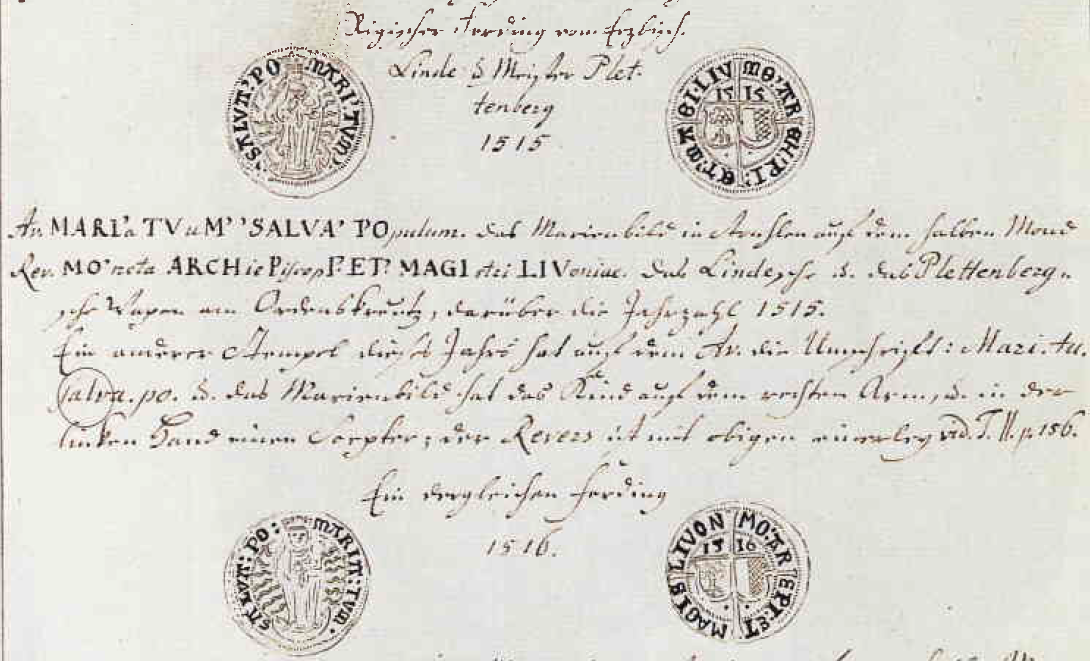 Rigischer Ferding vom Erzbisch.
Linde & Meister Plet-
tenberg
1515
SALVA' PO MARI' TVM
MO' AR EHI' PI' ET' MA GI' LIV
15 15
Av. MARI'a TVuM' 'SALVA' POpulum. Das Marienbild in Strahlen auf dem halben Mond
Rev. MO'neta ARCHiePIscopI' ET' MAGIstri LIVoniae. Das Lindesche u. das Plettenberg-
sche Wapen am Ordenskreutz, darüber die Jahrzahl 1515.
Ein anderer Stempel dieses Jahrs hat auf dem Av. die Umschrift: Mari. tu.
salva. po. u. das Marienbild hat das Kind auf dem rechten Arm, u. in der
linken Hand einen Scepter; der Revers ist mit obigen einerley vid. T. II. p. 156.
Ein dergleichen Ferding
1516.
SALVA: PO: MARIA: TVM.
MO: AR EPI: ET MAGIS LIVON
15 16